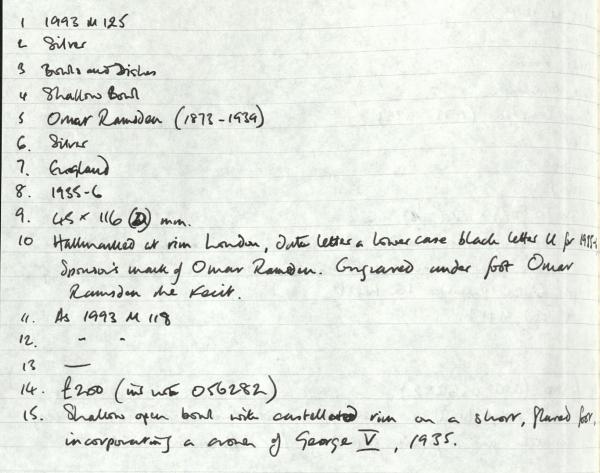 1 1993 M 125
2 Silver
3 Bowls and Dishes
4 Shallow Bowl
5 Omar Ramsden (1873-1939)
6. Silver
7. England
8. 1935-6
9. 45 x 116 (D) mm.
10 Hallmarked at rim London, date letter a lower case black letter u for 1935-6
Sponsor's mark of Omar Ramsden. Engraved under foot Omar
Ramsden me fecit.
11. As 1993 M 118
12. " "
13 —
14. £200 (inv 056282)
15. Shallow open bowl with castellated rim on a short, flared foot,
incorporating a crown of George V, 1935.